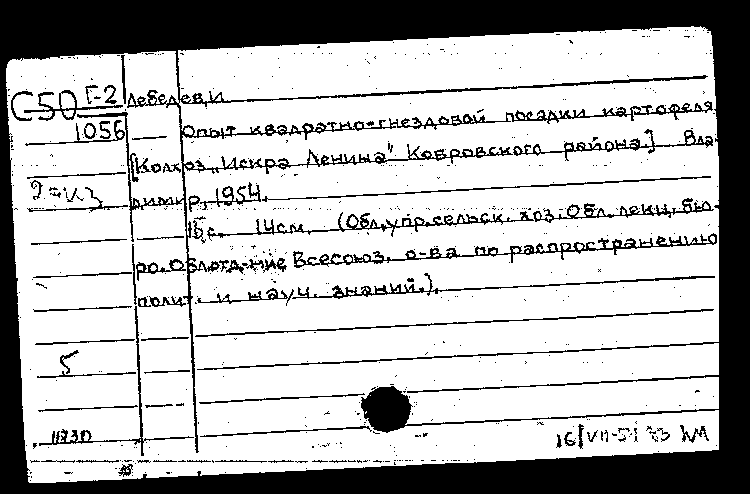 G50 Г-2 Лебедев, И
1056 Опыт квадратно-гнездовой посадки картофеля
[Колхоз „Искра Ленина" Ковровского района.] Вла-
димир, 1954.
15с. 14см. (Обл. упр. сельск. хоз. Обл. лекц. бю-
ро. Облотд-ние Всесоюз. о-ва по распространению
полит. и науч. знаний.).
5
1173П